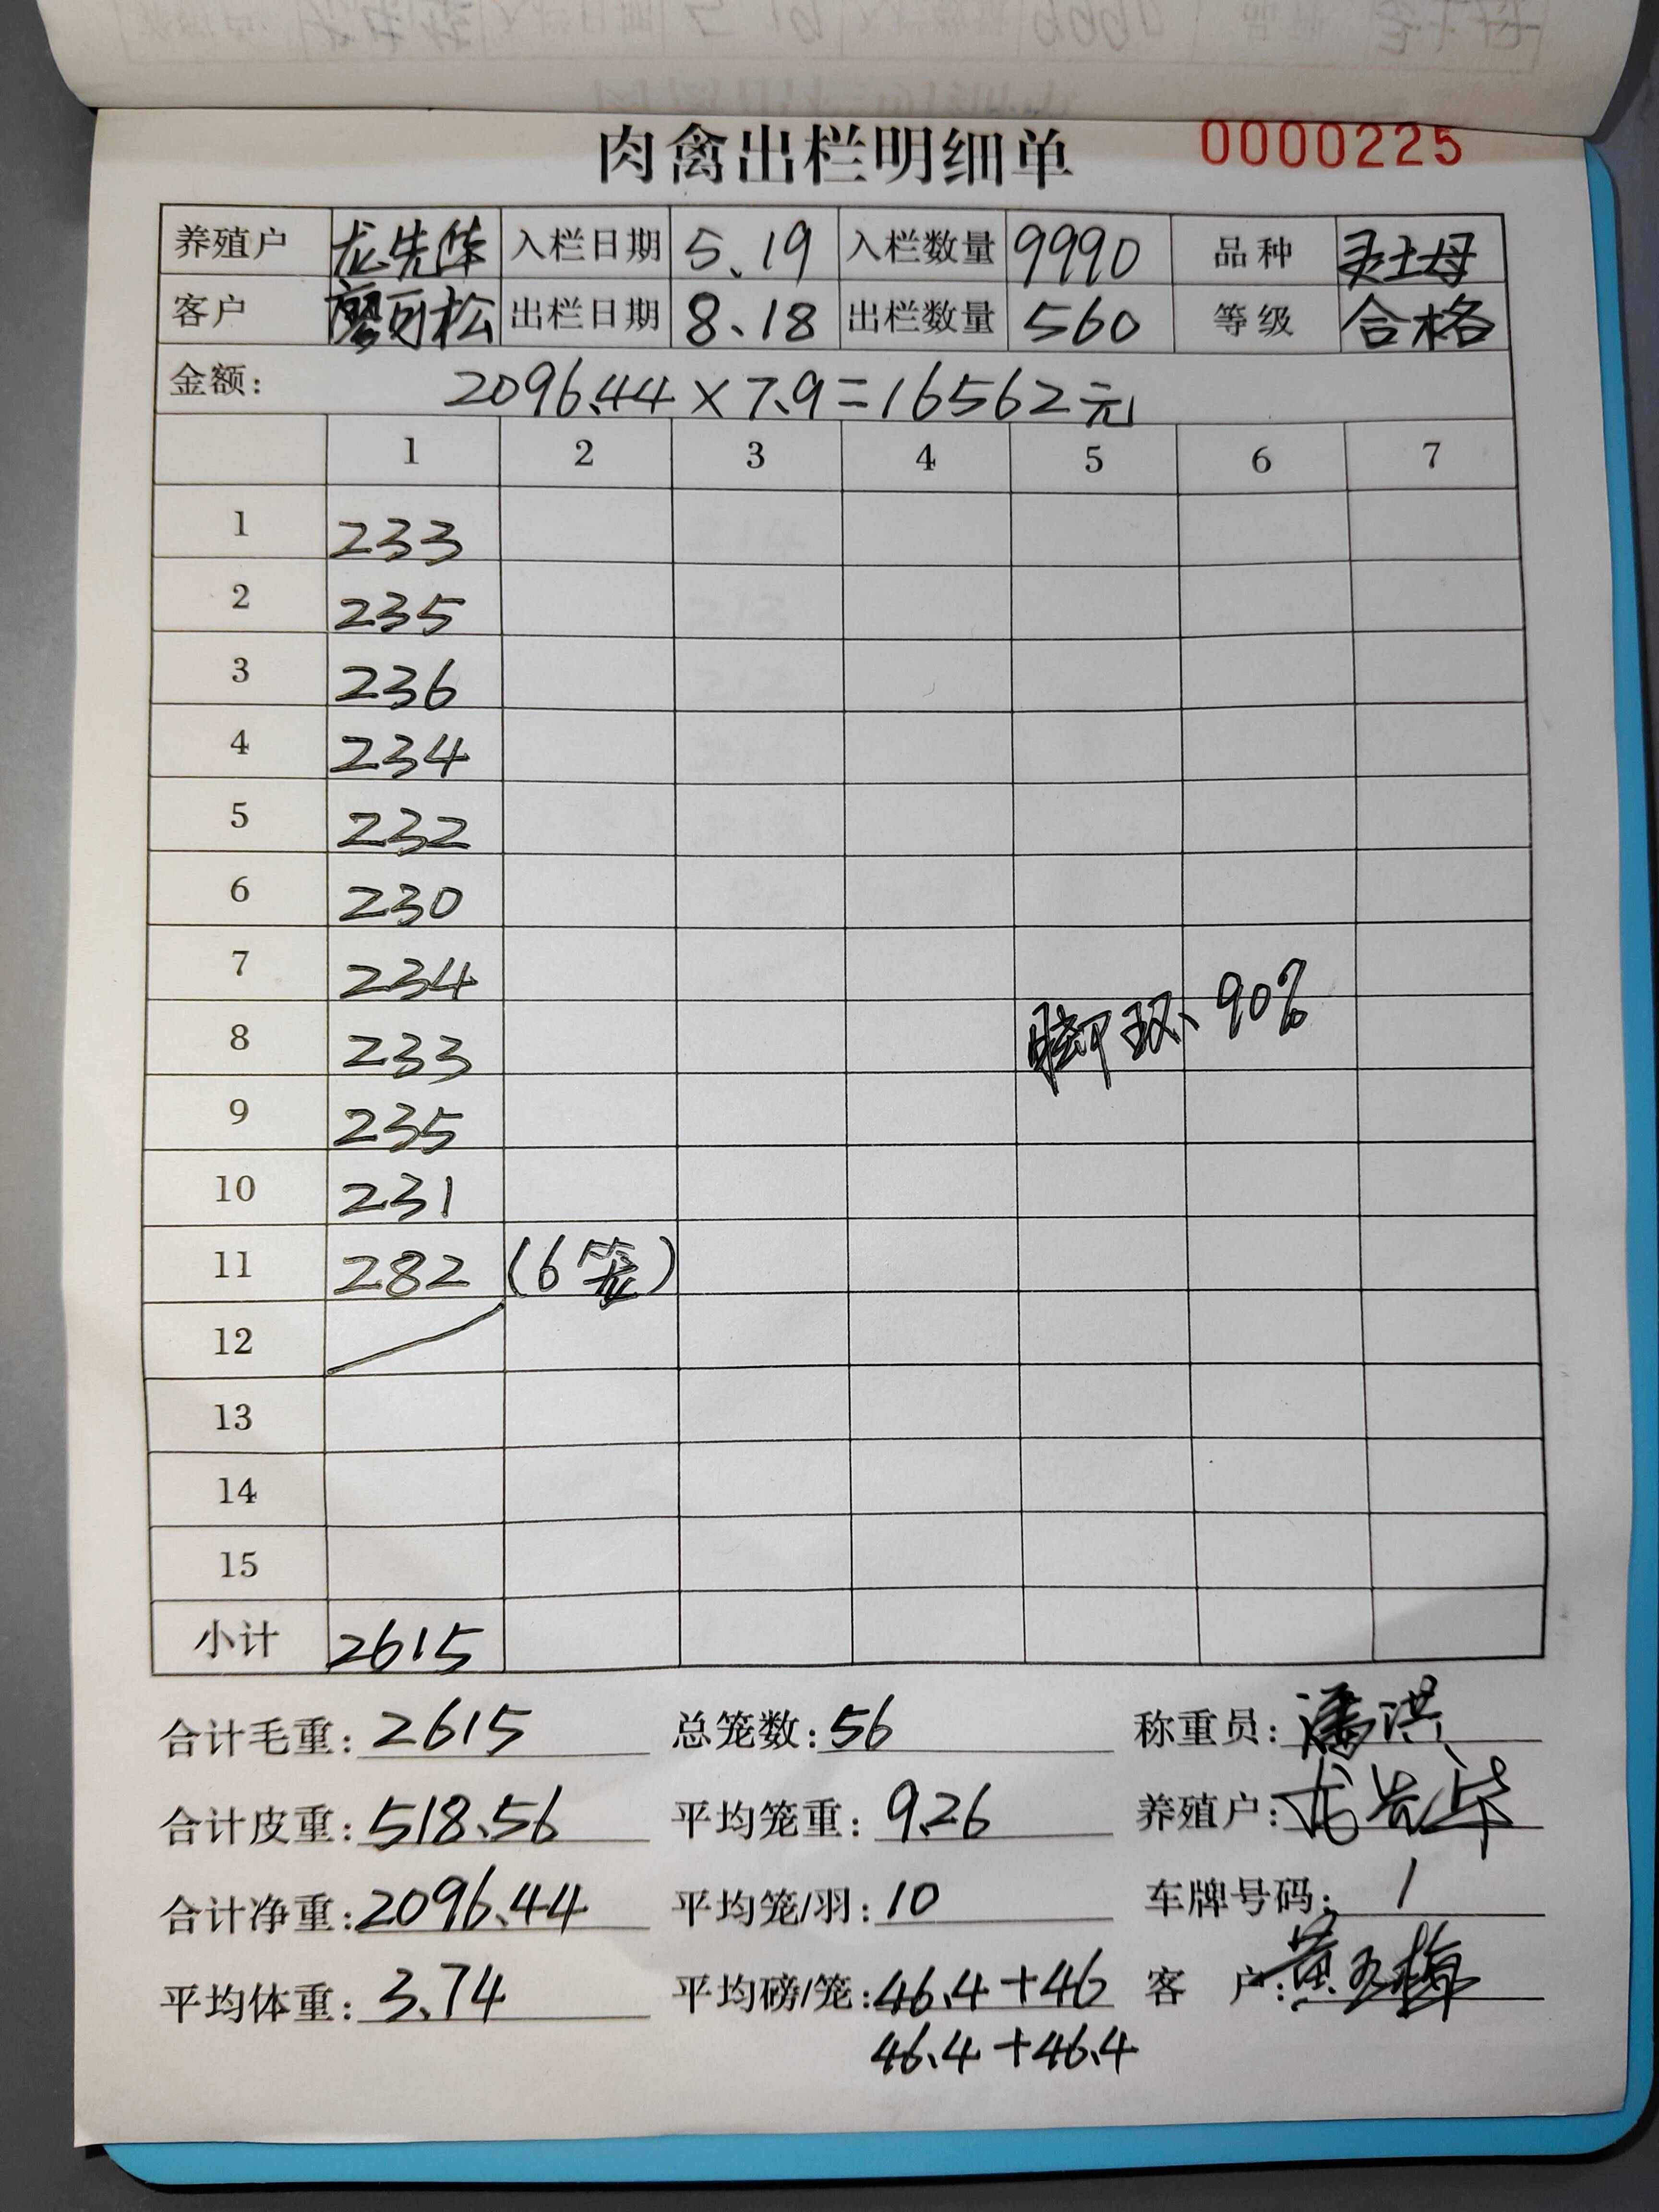 肉禽出栏明细单 0000225
养殖户 龙先华 入栏日期 5.19 入栏数量 9990 品种 灵土母
客户 廖可松 出栏日期 8.18 出栏数量 560 等级 合格
金额: 2096.44×7.9=16562元
1 2 3 4 5 6 7
1 233
2 235
3 236
4 234
5 232
6 230
7 234
脚环 90%
8 233
9 235
10 231
11 282 (6笼)
12
13
14
15
小计 2615
合计毛重: 2615 总笼数: 56 称重员: 潘洪
合计皮重: 518.56 平均笼重: 9.26 养殖户: 龙先华
合计净重: 2096.44 平均笼/羽: 10 车牌号码: 1
平均体重: 3.74 平均磅/笼: 46.4+46 客户:
46.4+46.4